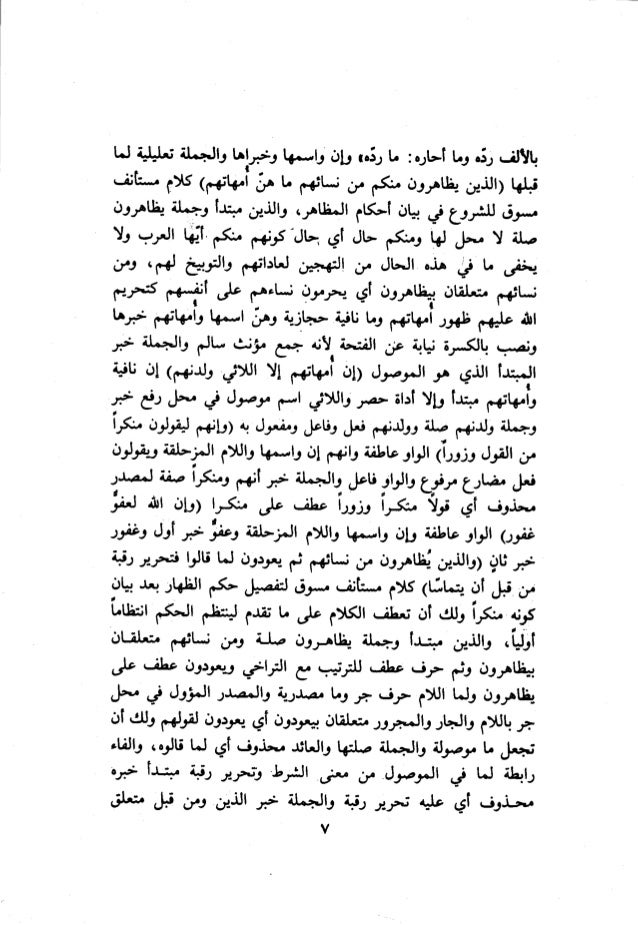 بالألف ردّه وما أحاره : ما ردّه» وإن واسمها وخبراها والجملة تعليلية لما
قبلها (الذين يظاهرون منكم من نسائهم ما هنّ أمهاتهم) كلام مستأنف
مسوق للشروع في بيان أحكام المظاهر، والذين مبتدأ وجملة يظاهرون
صلة لا محل لها ومنكم حال أي حال كونهم منكم أيّها العرب ولا
يخفى ما في هذه الحال من التهجين لعاداتهم والتوبيخ لهم، ومن
نسائهم متعلقان بيظاهرون أي يحرمون نساءهم على أنفسهم كتحريم
الله عليهم ظهور أمهاتهم وما نافية حجازية وهنّ اسمها وأمهاتهم خبرها
ونصب بالكسرة نيابة عن الفتحة لأنه جمع مؤنث سالم والجملة خبر
المبتدأ الذي هو الموصول (إن أمهاتهم إلا اللائي ولدنهم) إن نافية
وأمهاتهم مبتدأ وإلا أداة حصر واللائي اسم موصول في محل رفع خبر
وجملة ولدنهم صلة وولدنهم فعل وفاعل ومفعول به (وإنهم ليقولون منكراً
من القول وزوراً) الواو عاطفة وانهم إن واسمها واللام المزحلقة ويقولون
فعل مضارع مرفوع والواو فاعل والجملة خبر أنهم ومنكراً صفة لمصدر
محذوف أي قولًا منكراً وزوراً عطف على منكرا (وإن الله لعفوٌ
غفور) الواو عاطفة وإن واسمها واللام المزحلقة وعفوٌ خبر أول وغفور
خبر ثانٍ (والذين يُظاهرون من نسائهم ثم يعودون لما قالوا فتحرير رقبة
من قبل أن يتماسّا) كلام مستأنف مسوق لتفصيل حكم الظهار بعد بيان
كونه منكراً ولك أن تعطف الكلام على ما تقدم لينتظم الحكم انتظاماً
أولياً، والذين مبتدأ وجملة يظاهرون صلة ومن نسائهم متعلقان
بيظاهرون وثم حرف عطف للترتيب مع التراخي ويعودون عطف على
يظاهرون ولما اللام حرف جر وما مصدرية والمصدر المؤول في محل
جر باللام والجار والمجرور متعلقان بيعودون أي يعودون لقولهم ولك أن
تجعل ما موصولة والجملة صلتها والعائد محذوف أي لما قالوه، والفاء
رابطة لما في الموصول من معنى الشرط وتحرير رقبة مبتدأ خبره
محذوف أي عليه تحرير رقبة والجملة خبر الذين ومن قبل متعلق
٧